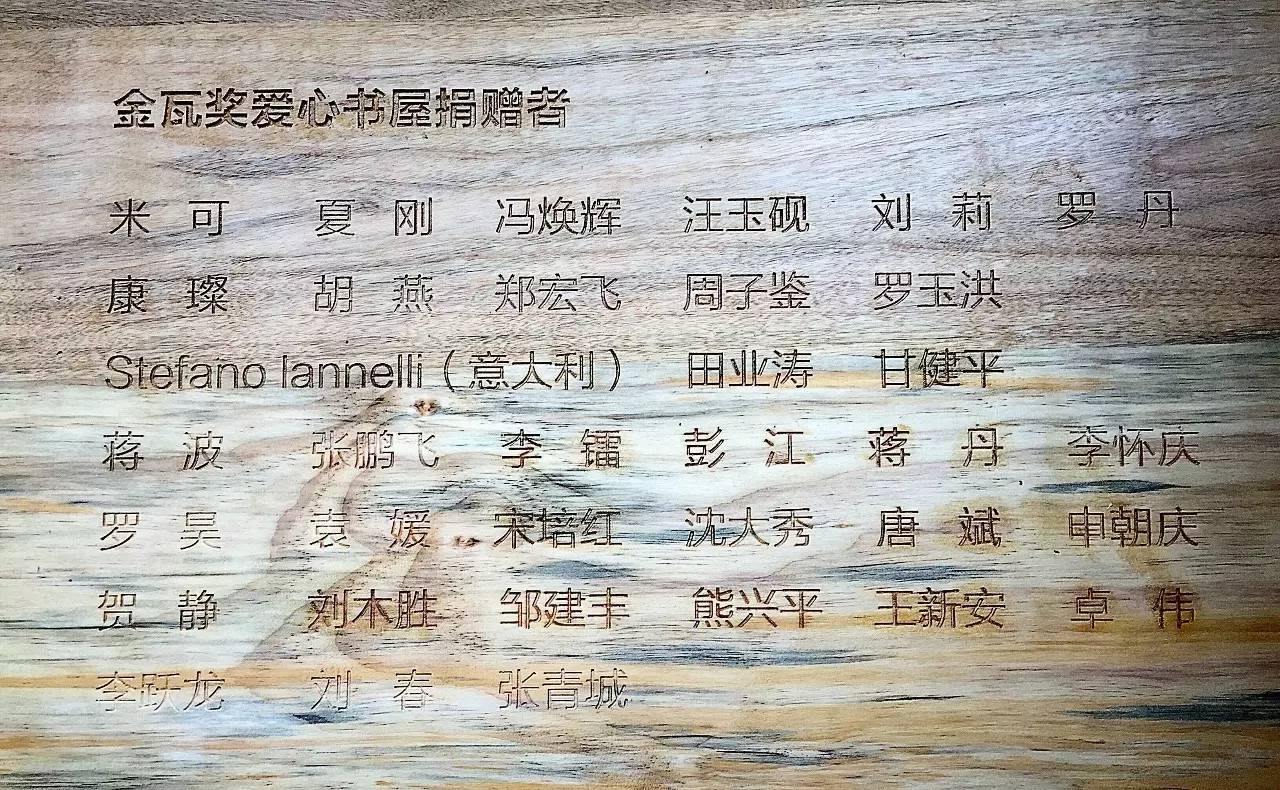 金瓦奖爱心书屋捐赠者
米 可 夏 刚 冯焕辉 汪玉砚 刘 莉 罗 丹
康 璨 胡 燕 郑宏飞 周子鉴 罗玉洪
Stefano Iannelli（意大利） 田业涛 甘健平
蒋 波 张鹏飞 李 镭 彭 江 蒋 丹 李怀庆
罗 昊 袁 媛 宋培红 沈大秀 唐 斌 申朝庆
贺 静 刘木胜 邹建丰 熊兴平 王新安 卓 伟
李跃龙 刘 春 张青城